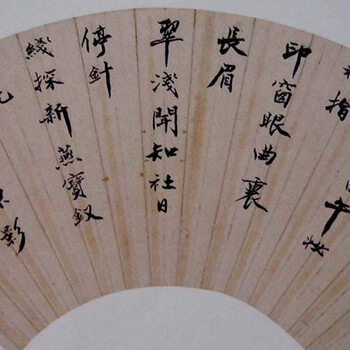 午妝
指
印窗眼曲裏
長眉
翠淺聞知社日
停針
綫探新燕寶釵
影